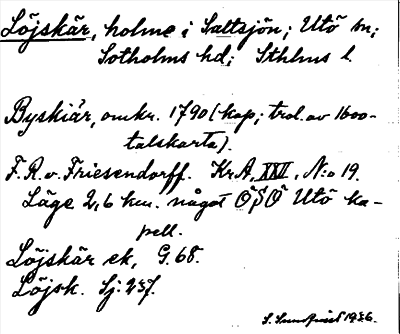 Löjskär, holme i Saltsjön; Utö sn;
Sotholms hd; Sthlms l.
Byskiär, omkr. 1790 (kop; trol. av 1600-
talskarta).
F. R. v. Friesendorff. KrA, XXVI, N:o 19.
Läge 2,6 km. något ÖSÖ Utö ka-
pell.
Löjskär ek, G. 68.
Löjsk. Sj: 237.
S. Sundqvist 1936.